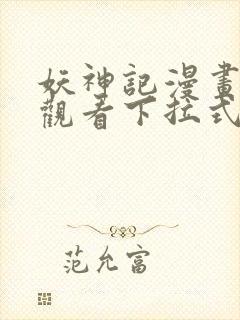 妖神記漫畫
觀看下拉式
范允富